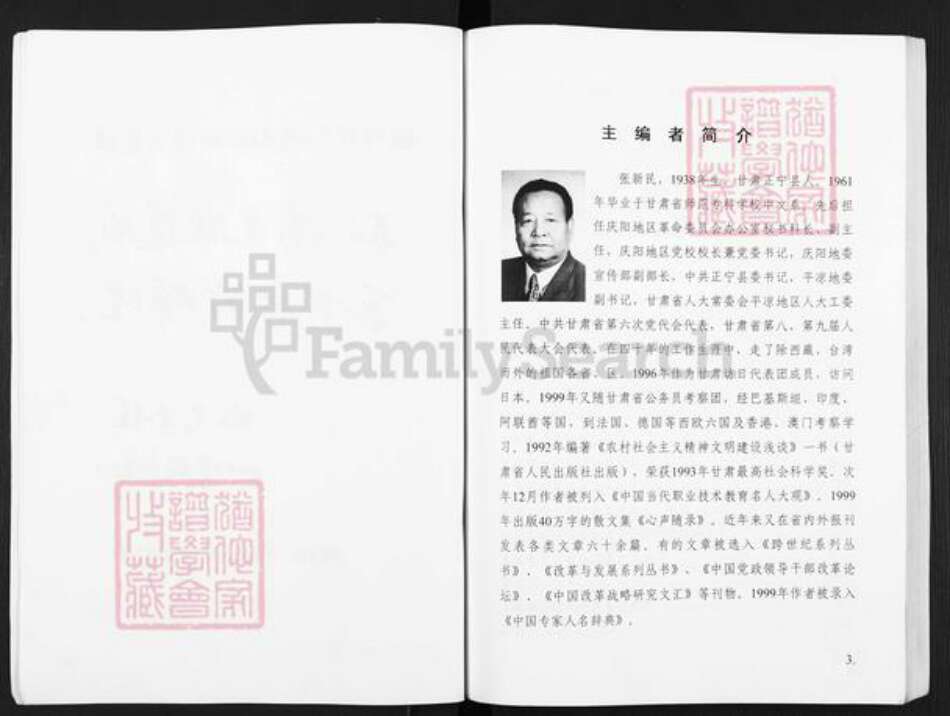 主编者简介
张新民，1938年生，甘肃正宁县人。1961
年毕业于甘肃省师范专科学校中文系，先后担
任庆阳地区革命委员会办公室秘书科长、副主
任，庆阳地区党校校长兼党委书记，庆阳地委
宣传部副部长，中共正宁县委书记，平凉地委
副书记，甘肃省人大常委会平凉地区人大工委
主任。中共甘肃省第六次党代会代表，甘肃省第八、第九届人
民代表大会代表。在四十年的工作生涯中，走了除西藏，台湾
而外的祖国各省、区。1996年作为甘肃访日代表团成员，访问
日本。1999年又随甘肃省公务员考察团，经巴基斯坦，印度，
阿联酋等国，到法国、德国等西欧六国及香港、澳门考察学
习。1992年编著《农村社会主义精神文明建设浅谈》一书（甘
肃省人民出版社出版），荣获1993年甘肃最高社会科学奖。次
年12月作者被列入《中国当代职业技术教育名人大观》。1999
年出版40万字的散文集《心声随录》。近年来又在省内外报刊
发表各类文章六十余篇。有的文章被选入《跨世纪系列丛
书》、《改革与发展系列丛书》、《中国党政领导干部改革论
坛》、《中国改革战略研究文汇》等刊物。1999年作者被录入
《中国专家人名辞典》。
3.
FamilySearch